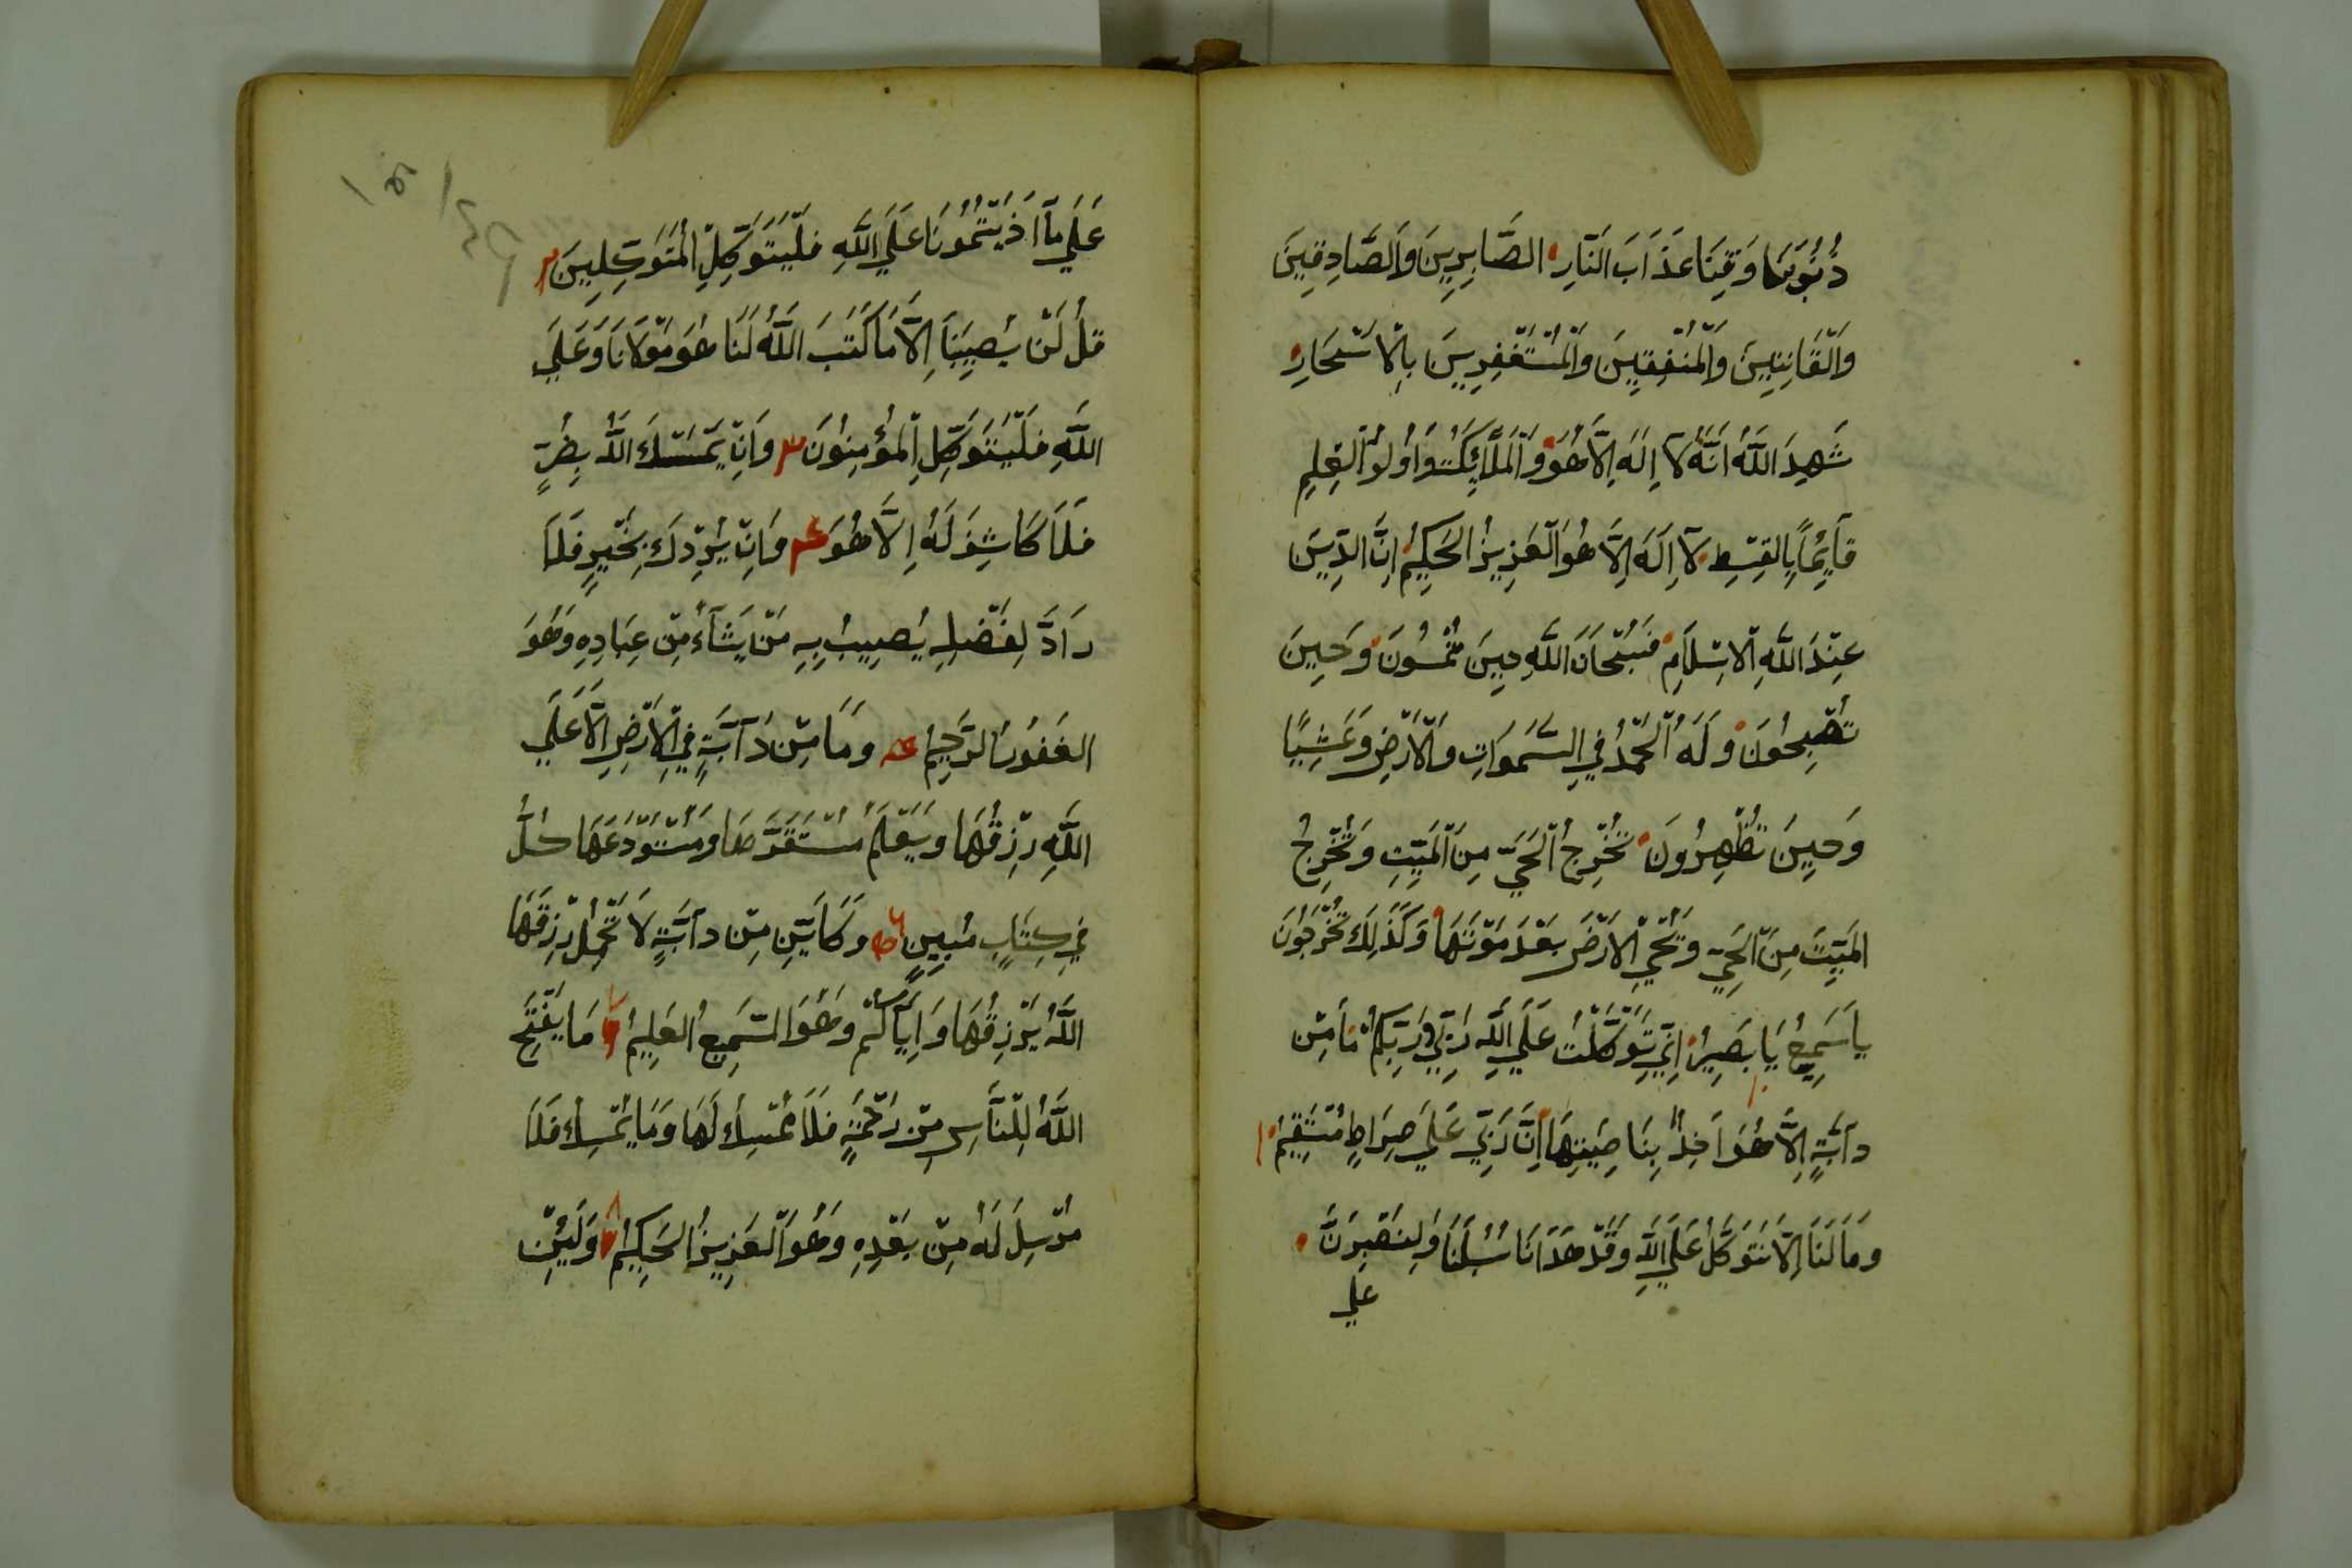 ذُنُوبَنَا وَقِنَا عَذَابَ النَّارِ الصَّابِرِينَ وَالصَّادِقِينَ
وَالْقَانِتِينَ وَالْمُنْفِقِينَ وَالْمُسْتَغْفِرِينَ بِالْاَسْحَارِ
شَهِدَ اللَّهُ اَنَّهُ لَآ اِلَهَ اِلَّا هُوَ وَالْمَلَائِكَتُ وَاُولُوا الْعِلِمِ
قَآئِمًا بِالْقِسْطِ لَآ اِلَهَ اِلَّا هُوَ الْعَزِيزُ الْحَكِيمُ اِنَّ الدِّينَ
عِنْدَ اللَّهِ الْاِسْلَامِ فَسُبْحَانَ اللَّهِ حِينَ تُمْسُونَ وَحِينَ
تُصْبِحُونَ وَلَهُ الْحَمْدُ فِي السَّمَوَاتِ وَالْاَرْضِ وَعَشِيًّا
وَحِينَ تُظْهِرُونَ تُخْرِجُ الْحَيَّ مِنَ الْمَيِّتِ وَتُخْرِجُ
الْمَيِّتَ مِنَ الْحَيِّ وَيُحْيِ الْاَرْضَ بَعْدَ مَوْتِهَا وَكَذَلِكَ تُخْرَجُونَ
يَا سَمِيعُ يَا بَصِيرُ اِنِّي تَوَكَّلْتُ عَلَي اللَّهِ رَبِّي وَرَبِّكُمْ مَا مِنْ
دَآبَّةٍ اِلَّا هُوَ اَخِذٌ بِنَاصِيَتِهَا اِنَّ رَبِّي عَلَي صِرَاطٍ مُسْتَقِيمٍ ١
وَمَا لَنَا اَلَّا نَتَوَكَّلُ عَلَي اللَّهِ وَقَدْ هَدَانَا سُبُلَنَا وَلَنَصْبِرَنَّ
علي
عَلَي مَآ اَذَيْتُمُونَا عَلَي اللَّهِ فَلْيَتَوَكَّلِ الْمُتَوَكِّلِينَ ٢
قُلْ لَنْ يُصِيبَنَا اِلَّا مَا كَتَبَ اللَّهُ لَنَا هُوَ مَوْلَانَا وَعَلَي
اللَّهِ فَلْيَتَوَكَّلِ الْمُؤْمِنُونَ ٣ وَاِنْ يَمْسَسْكَ اللَّهُ بِضُرٍّ
فَلَا كَاشِفَ لَهُ اِلَّا هُوَ ٤ وَاِنْ يُرِدْكَ بِخَيْرٍ فَلَا
رَادَّ لِفَضْلِهِ يُصِيبُ بِهِ مَنْ يَشَآءُ مِنْ عِبَادِهِ وَهُوَ
الْغَفُورُ الرَّحِيمُ وَمَا مِنْ دَآبَّةٍ فِي الْاَرْضِ اِلَّا عَلَي
اللَّهِ رِزْقُهَا وَيَعْلَمُ مُسْتَقَرَّهَا وَمُسْتَوْدَعَهَا كُلٌّ
فِي كِتَابٍ مُبِينٍ وَكَاَيِّنْ مِنْ دَآبَّةٍ لَا تَحْمِلُ رِزْقَهَا
اللَّهُ يَرْزِقُهَا وَاِيَّاكُمْ وَهُوَ السَّمِيعُ الْعَلِيمُ مَا يَفْتَحِ
اللَّهُ لِلنَّاسِ مِنْ رَحْمَةٍ فَلَا مُمْسِكَ لَهَا وَمَا يُمْسِكْ فَلَا
مُرْسِلَ لَهُ مِنْ بَعْدِهِ وَهُوَ الْعَزِيزُ الْحَكِيمُ وَلَئِنْ